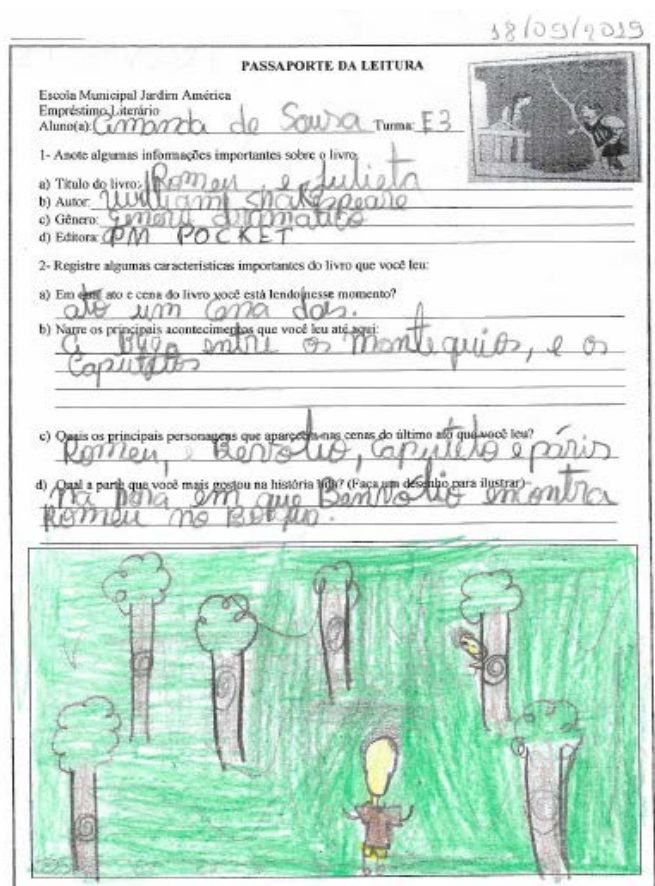 18/09/2019
PASSAPORTE DA LEITURA
Escola Municipal Jardim América
Empréstimo Literário
Aluno(a): Amanda de Sousa Turma: E3
1- Anote algumas informações importantes sobre o livro
a) Título do livro: Romeu e Julieta
b) Autor: William Shakespeare
c) Gênero: Generu dramatico
d) Editora: PM POCKET
2- Registre algumas características importantes do livro que você leu:
a) Em qual ato e cena do livro você está lendo nesse momento?
ato um cena dois.
b) Narre os principais acontecimentos que você leu até aqui:
A entre os Montequios, e os
Caputetos
c) Quais os principais personagens que aparecem nas cenas do último ato que você leu?
Romeu, e Benvolio, Caputeto e páris
d) Qual a parte que você mais gostou na história lida? (Faça um desenho para ilustrar)
Na hora em que Benvolio encontra
Romeu no